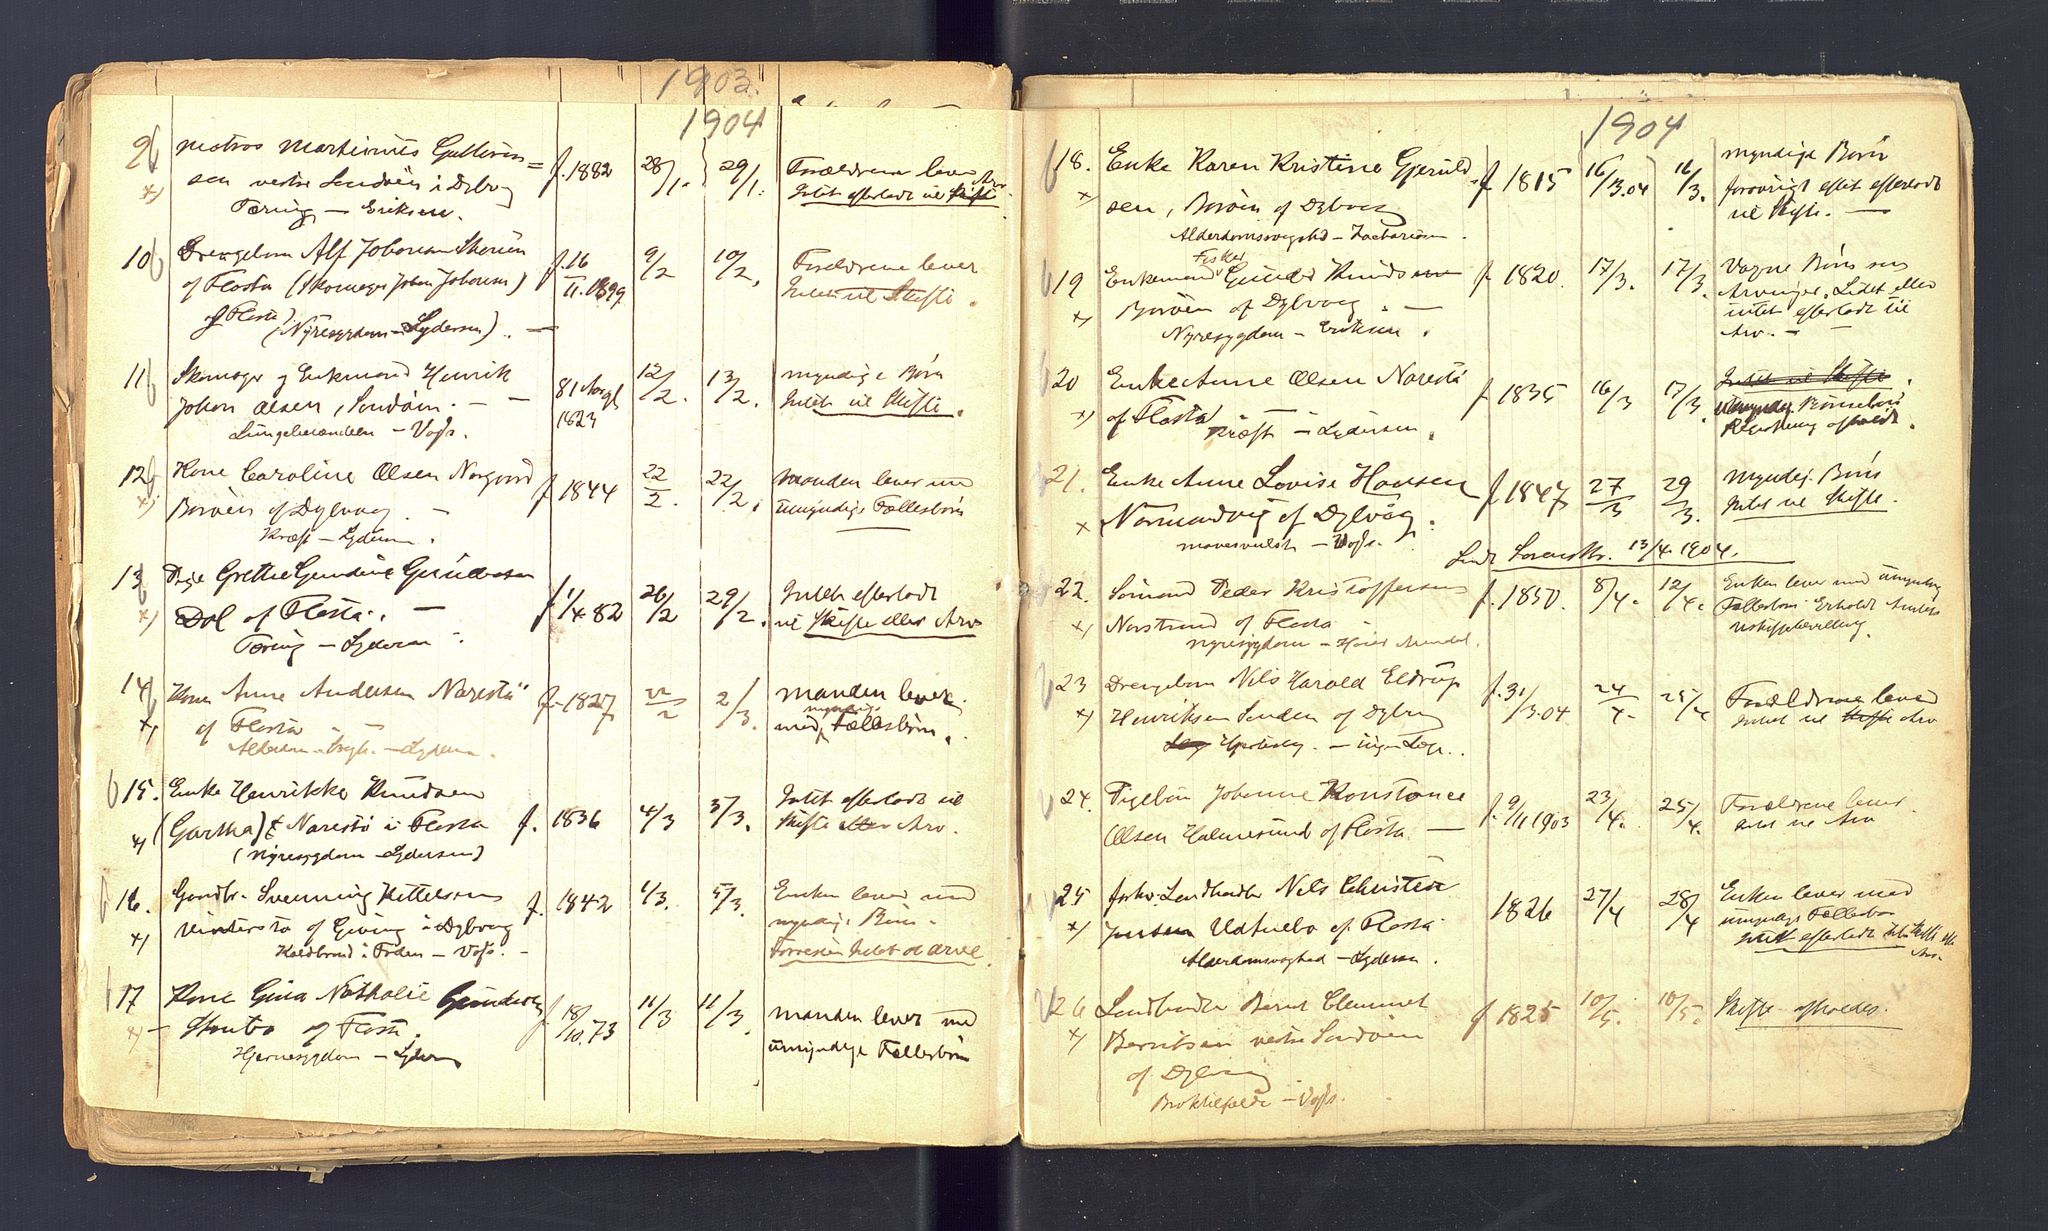 1903.
1904
9 Matros Martinius Gulliksen
sen vestre Sandøen i Dybvåg
Tæring — Eriksen.
f. 1882 28/1. 29/1.
Forældrene lever
Intet efterladt til Skifte
10 Drengebarn Alf Johansen Staren
of Flosta (Skomager Johan Johansen)
of Flosta
(Nyresygdom — Lydersen). —
f. 16
11. 1899
9/2 10/2.
Forældrene lever
Intet til Skifte.
11 Skomager og Enkmand Henrik
Johan Olsen, Sandøen. — —
Lungebetændelse — Vogt.
1823
12/2. 13/2.
myndige Børn
Intet til Skifte.
12 Kone Caroline Olsen Norgard
Borøen of Dybvåg. —
Kræft — Lydersen.
f 1844 22/2. 22/2.
manden lever med
umyndige Fællesbørn
13 Pige Grethe Gundine Gundersen
Dal of Flosta. —
Tæring — Lydersen.
f 1/4 82 26/2 29/2.
Intet efterladt
til Skifte eller Arv
14 Kone Anne Andersen Narestø
of Flosta
— Lydersen.
f. 1827 22/2 2/3.
manden lever
med myndige Fællesbørn.
15. Enke Henrikke Knudsen
(Gartha) Narestø i Flosta
(Nyresygdom — Lydersen)
f. 1836 4/3 5/3.
Intet efterladt til
Skifte eller Arv.
16. Gaardbr. Svenning Kittelsen
Vintersto of Giving i Dybvåg
Koldbrand i Foden — Vogt. —
f. 1842 1/3. 5/3.
Enken lever med
myndige Børn.
Forresten Intet at arve.
17 Kone Gina Nathalie Gundersen
Stuebo of Flosta.
Hjernesygdom — Lydersen
f 18/10. 73 11/3 11/3.
manden lever med
umyndige Fællesbørn
1904
18. Enke Karen Kristine Gjeruld-
sen, Borøen of Dybvåg
Alderdomssvaghed — Zachariasen.
f 1815 16/13.04 16/3.
myndige Børn
forøvrigt intet efterladt
til Skifte. —
Fisker
19 Enkemand Gunder Knudsen
Borøen of Dybvåg. —
Nyresygdom — Eriksen.
f 1820. 17/3. 17/3.
Voxne Børn som
Arvinger. Lidet eller
intet efterladt til
Arv. —
20 Enke Anne Olsen Narestø
of Flosta
Kræft — Lydersen.
f 1835 16/3 17/3.
Intet til Skifte.
Registrering afholdt.
21. Enke Anne Lovise Hansen
Normandvig of Dybvåg.
mavesvulst — Vogt.
f 1847 27/3 29/3.
Myndige Børn
Intet til Skifte.
Sendt Sorenskr. 13/4 1904.
22. Sømand Peder Kristoffersen
Narstrand of Flosta
Nyresygdom — Høier Arendal.
f. 1850. 8/4. 12/4.
Enken lever med umyndig
23 Drengebarn Nils Harald Eldrup
Henriksen Sanden of Dybvåg
— ingen Læge.
f. 31/3.04 24/4. 25/4
Forældrene lever
Intet til Skifte Arv
24. Pigebarn Johanne Konstance
Olsen Holmesund of Flosta —
f. 9/11 1903 23/4. 25/4.
Forældrene lever.
Intet til Arv
25 forhv. Landhandler Nils Christian
Jensen of Flosta
Alderdomssvaghed — Lydersen.
1826 27/4 28/4
Enken lever med
umyndige Fællesbørn
Intet efterladt til Skifte eller
Arv.
26 Landhandler Bernt Clemmet
Berntsen vestre Sandøen
of Dybvåg
Broktilfælde — Vogt.
f 1825 10/5. 10/5.
Skifte afholdes.